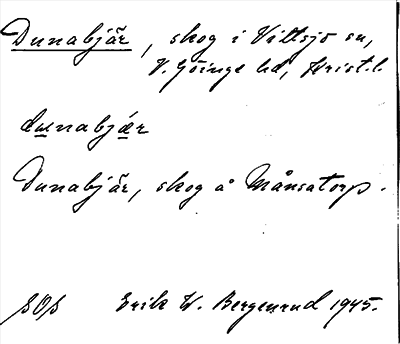 Dunabjär, skog i Vittsjö sn,
V. Göinge hd, Krist. l.
dunabjær
Dunabjär, skog å Månsatorp.
SOS Erik W. Bergenrud 1945.